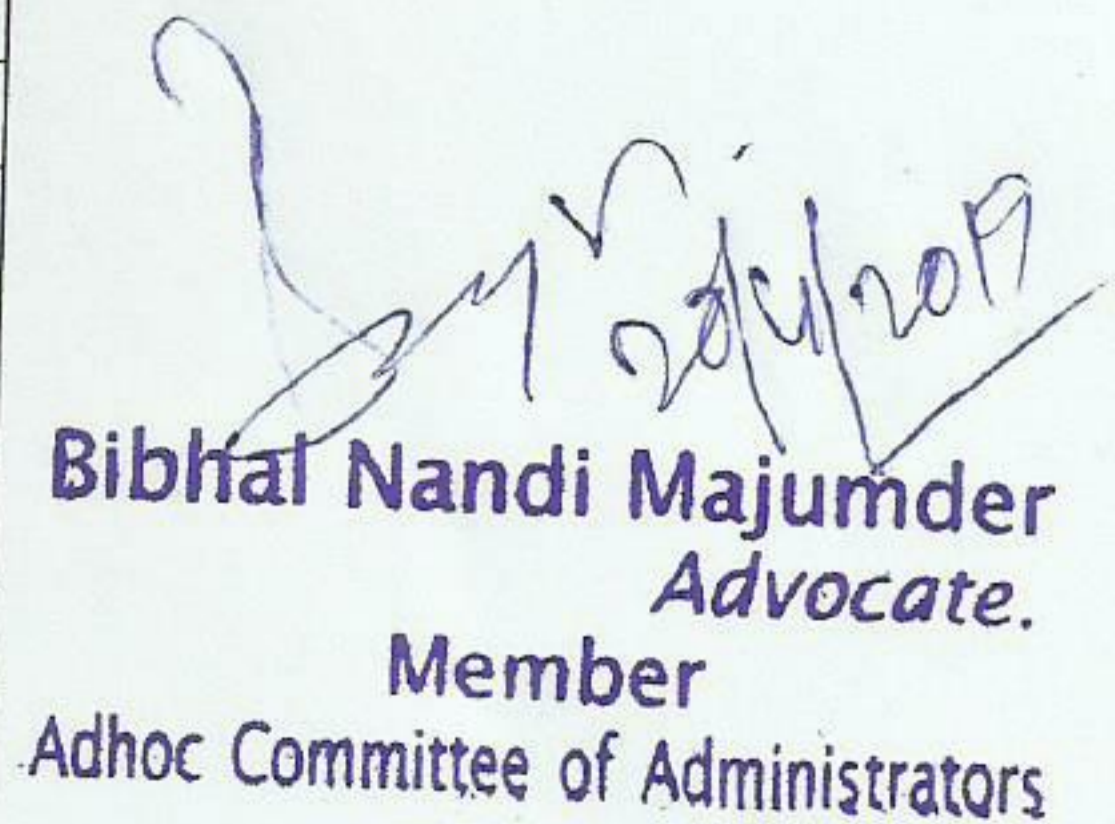 Bibhal Nandi Majumder
Advocate.
Member
Adhoc Committee of Administrators